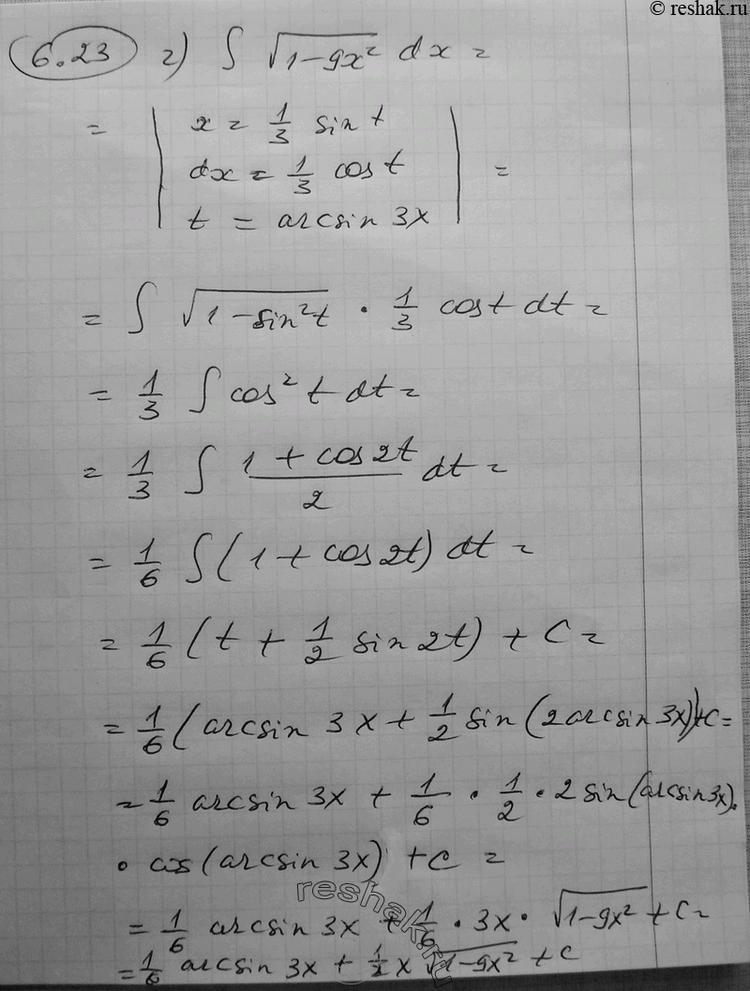 © reshak.ru
6.23 г) ∫ √(1-9x²) dx =
= | x = 1/3 sin t
dx = 1/3 cos t | =
t = arcsin 3x |
= ∫ √(1-sin²t) · 1/3 cos t dt =
= 1/3 ∫ cos² t dt =
= 1/3 ∫ (1 + cos 2t)/2 dt =
= 1/6 ∫ (1 + cos 2t) dt =
= 1/6 (t + 1/2 sin 2t) + C =
= 1/6 (arcsin 3x + 1/2 sin (2 arcsin 3x)) + C =
= 1/6 arcsin 3x + 1/6 · 1/2 · 2 sin (arcsin 3x) ·
· cos (arcsin 3x) + C =
= 1/6 arcsin 3x + 1/6 · 3x · √(1-9x²) + C =
= 1/6 arcsin 3x + 1/2 x √(1-9x²) + C
reshak.ru